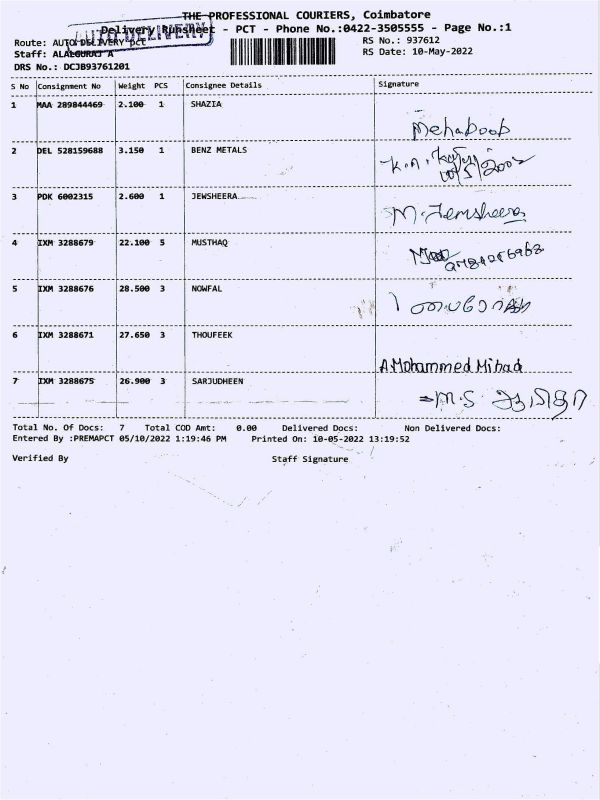 THE PROFESSIONAL COURIERS, Coimbatore
Delivery Runsheet - PCT - Phone No.:0422-3505555 - Page No.:1
AUTO DELIVERY
Route: AUTO DELIVERY pct RS No.: 937612
Staff: ALALGURAJ A RS Date: 10-May-2022
DRS No.: DCJB93761201
S No Consignment No Weight PCS Consignee Details Signature
1 MAA 289844469 2.100 1 SHAZIA
Mehaboob
2 DEL 528159688 3.150 1 BENZ METALS
3 PDK 6002315 2.600 1 JEWSHEERA
M. Jemsheera
4 IXM 3288679 22.100 5 MUSTHAQ
5 IXM 3288676 28.500 3 NOWFAL
6 IXM 3288671 27.650 3 THOUFEEK
A Mohammed Mihad
7 IXM 3288675 26.900 3 SARJUDHEEN
M.S
Total No. Of Docs: 7 Total COD Amt: 0.00 Delivered Docs: Non Delivered Docs:
Entered By :PREMAPCT 05/10/2022 1:19:46 PM Printed On: 10-05-2022 13:19:52
Verified By Staff Signature